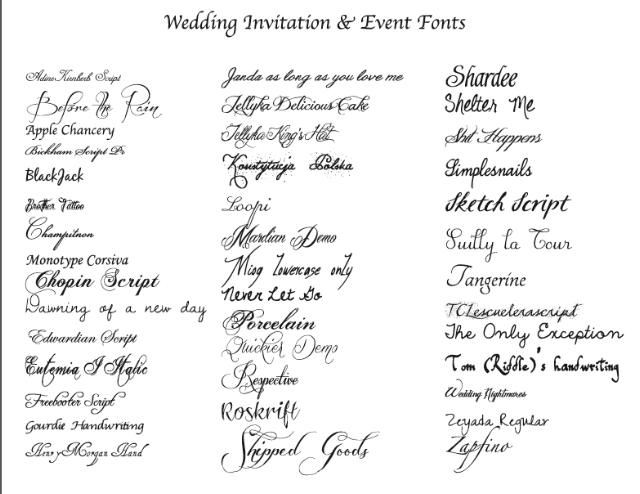 Wedding Invitation & Event Fonts
Adine Kirnberb Script
Before the Rain
Apple Chancery
Bickham Script Pr
BlackJack
Brother Tattoo
Champitnon
Monotype Corsiva
Chopin Script
Dawning of a new day
Edwardian Script
Eutemia I Italic
Freebooter Script
Gourdie Handwriting
Henry Morgan Hand
Janda as long as you love me
Jellyka Delicious Cake
Jellyka King's Hat
Konstytucja Polska
Loopi
Mardian Demo
Miog lowercase only
Never Let Go
Porcelain
Quickier Demo
Respective
Roskrift
Shipped Goods
Shardee
Shelter Me
Shit Happens
Simplesnails
Sketch Script
Suilly la Tour
Tangerine
TCLescuelerascript
The Only Exception
Tom (Riddle)'s handwriting
Wedding Nightmares
Zeyada Regular
Zapfino